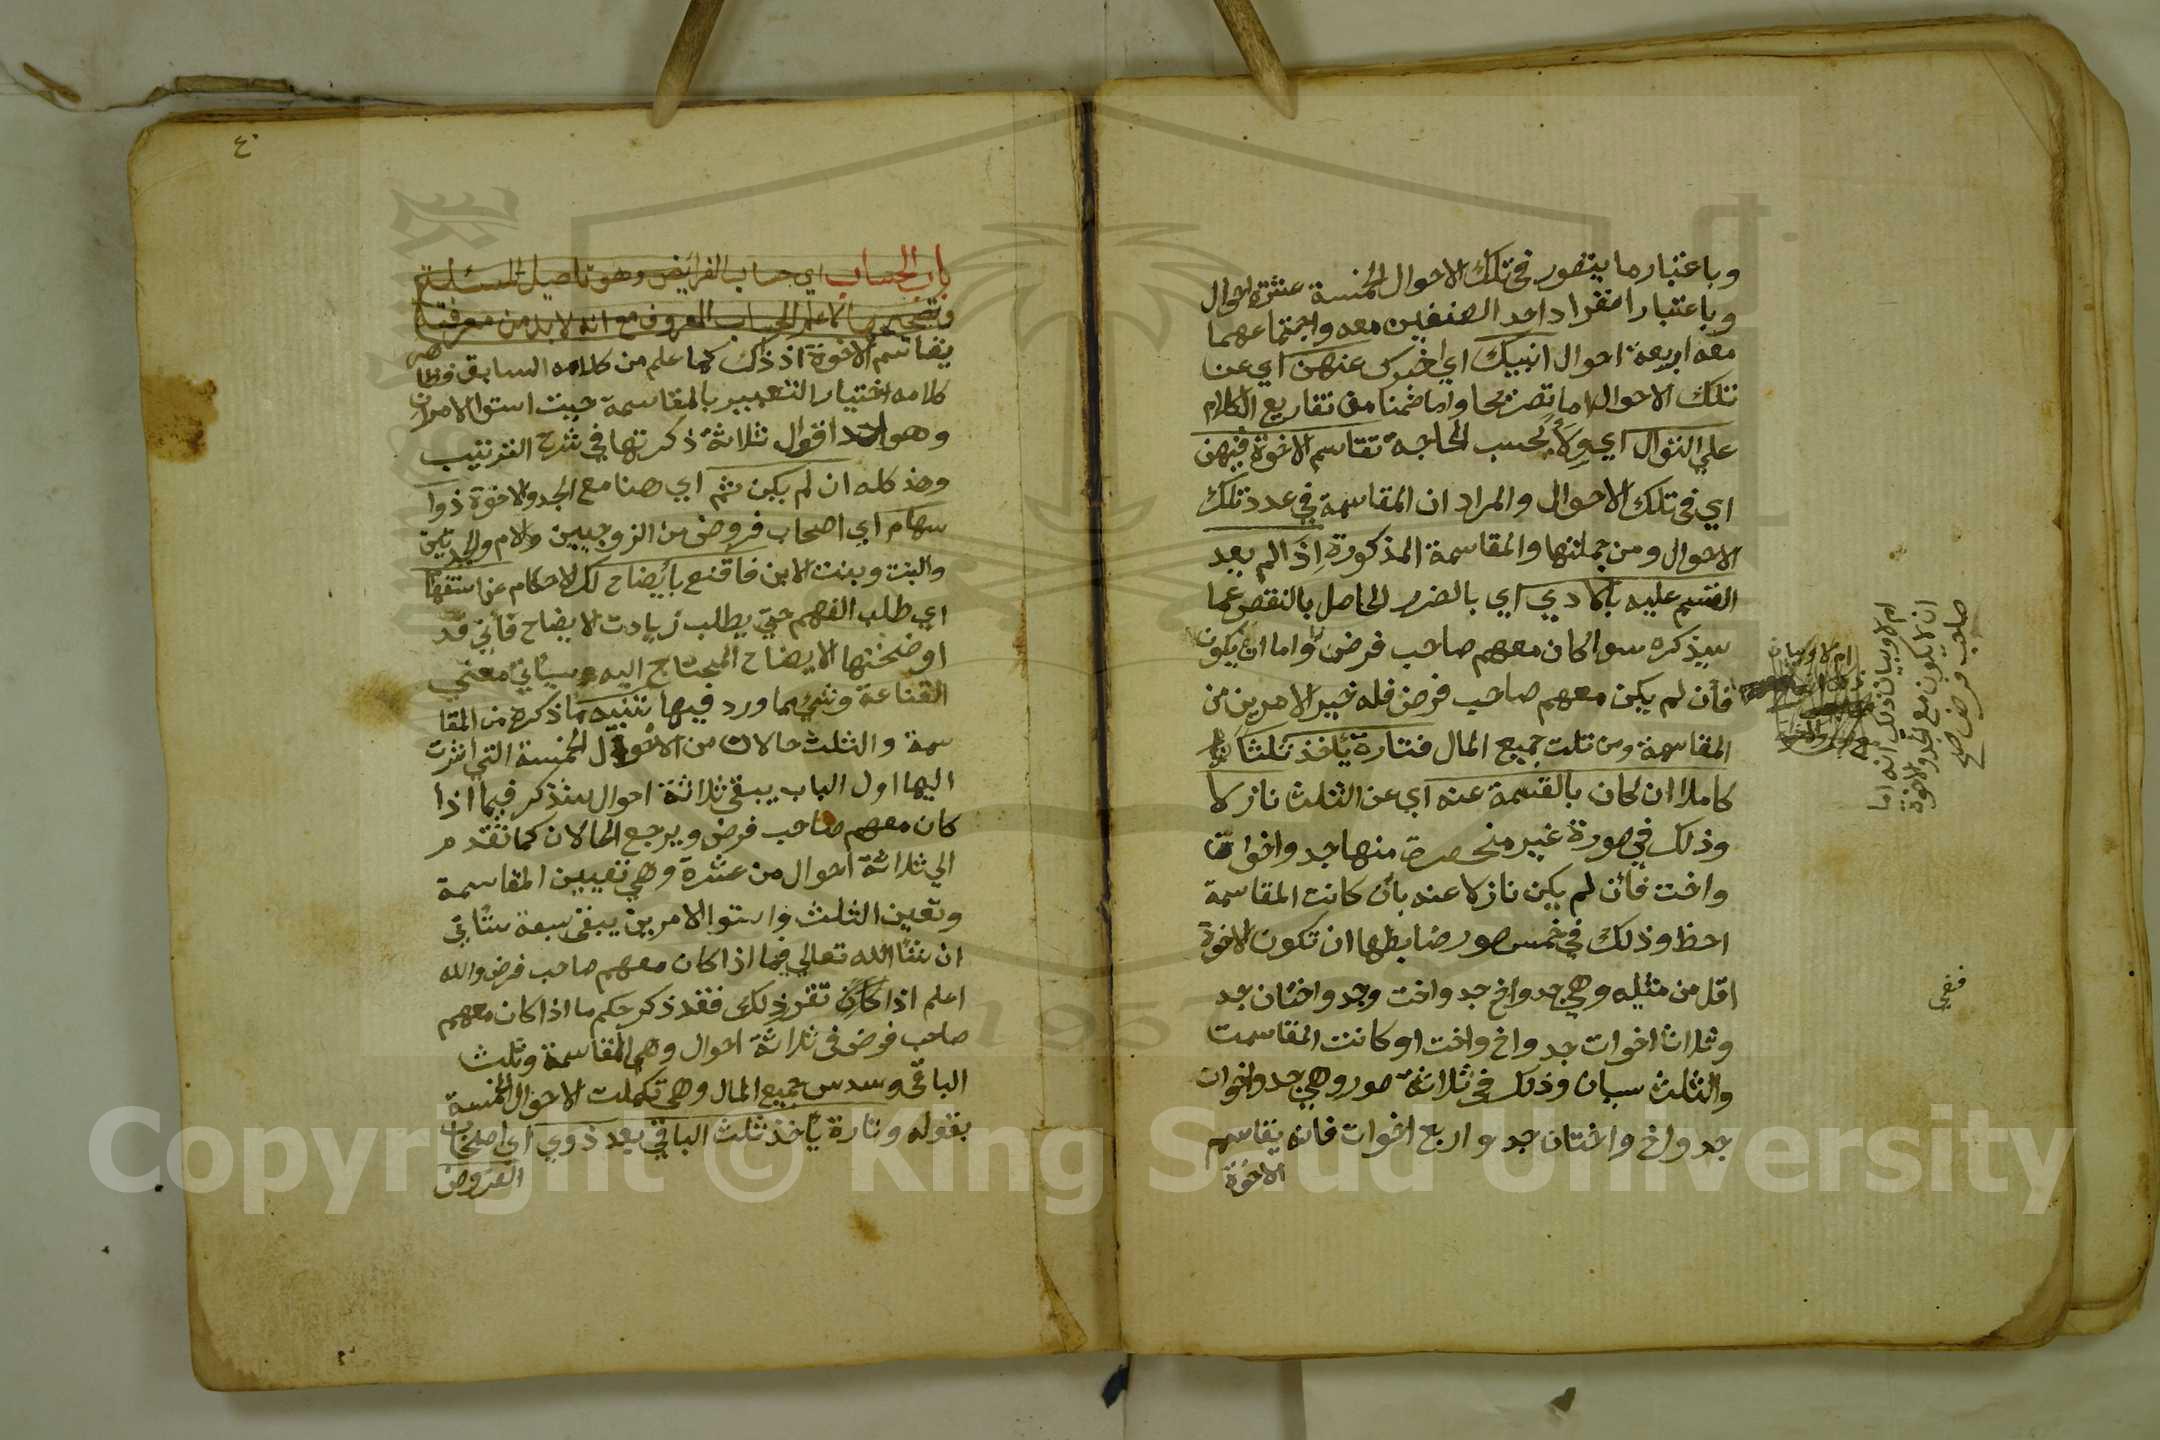 وباعتبار ما يتصور في تلك الاحوال الخمسة عشرة احوال
وباعتبار انفراد احد الصنفين معه واجتماعهما
معه اربعة احوال انبيك اي اخبرك عنهن اي عن
تلك الاحوال اما تصريحا واما ضمنا من تفاريع الكلام
علي التوال اي ولاء بحسب الحاجة تقاسم الاخوة فيهن
اي في تلك الاحوال والمراد ان المقاسمة في عدد تلك
الاحوال ومن جملتها والمقاسمة المذكورة اذا لم يعد
القسم عليه بالاذي اي بالضرر الحاصل بالنقص عما
سيذكره سوا كان معهم صاحب فرض واما ان يكون
فأن لم يكن معهم صاحب فرض فله خير الامرين من
المقاسمة ومن ثلث جميع المال فتارة يأخذ ثلثا
كاملا ان كان بالقسمة عنه اي عن الثلث نازلا
وذلك في صورة غير منحصرة منها جد واخوان
واخت فأن لم يكن نازلا عنه بأن كانت المقاسمة
احظ وذلك في خمس صور ضابطها ان تكون الاخوة
اقل من مثليه وهي جد واخ جد واخت وجد واختان جد
وثلاث اخوات جد واخ واخت او كانت المقاسمت
والثلث سيان وذلك في ثلاثة صور وهي جد واخوان
جد واخ واختان جد واربع اخوات فانه يقاسم
الاخوة
ام لا وبيان ذلك انه اما
ان لا يكون مع الجد والاخوة
صاحب فرض صح
ففي
٤٠
باب الحساب اي حساب الفرايض وهو تاصيل المسئلة
وتصحيحها لا علم الحساب المعروف مع انه لابد من معرفته
يقاسم الاخوة اذ ذاك كما علم من كلامه السابق وظاهر
كلامه اختيار التعبير بالمقاسمة حيث استوا الامران
وهو احد اقوال ثلاثة ذكرتها في شرح الترتيب
وهذ كله ان لم يكن ثم اي هنا مع الجد والاخوة ذوا
سهام اي اصحاب فروض من الزوجيين والام والجدتين
والبنت وبنت الابن فاقنع بأيضاح لك الاحكام عن استفها
اي طلب الفهم حتي يطلب زيادت الايضاح فأني قد
اوضحتها الايضاح المحتاج اليه وسيأتي معني
القناعة وشئ مما ورد فيها تنبيه ما ذكره من المقا
سمة والثلث حالان من الاحوال الخمسة التي اشرت
اليها اول الباب يبقي ثلاثة احوال ستذكر فيما اذا
كان معهم صاحب فرض ويرجع الحالان كما تقدم
الي ثلاثة احوال من عشرة وهي تعيين المقاسمة
وتعين الثلث واستوا الامرين يبقي سبعة ستأتي
ان شأ الله تعالي فيما اذا كان معهم صاحب فرض والله
اعلم اذا كان تقرر ذلك فقد ذكر حكم ما اذا كان معهم
صاحب فرض في ثلاثة احوال وهي المقاسمة وثلث
الباقي وسدس جميع المال وهي تكملت الاحوال الخمسة
بقوله وتارة يأخذ ثلث الباقي بعد ذوي اي اصحاب
الفروض
Copyright © King Saud University
1957